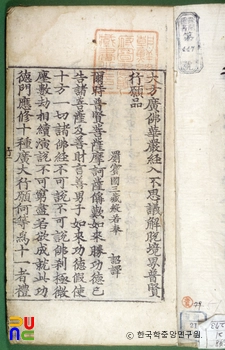 大方廣佛華嚴經入不思議解脫境界普賢
行願品
罽賓國三藏般若奉 詔譯
爾時普賢菩薩摩訶薩稱歎如來勝功德已
告諸菩薩及善財言善男子如來功德假使
十方一切諸佛經不可說不可說佛刹極微
塵數劫相續演說不可窮盡若欲成就此功
德門應修十種廣大行願何等爲十一者禮
© 한국학중앙연구원